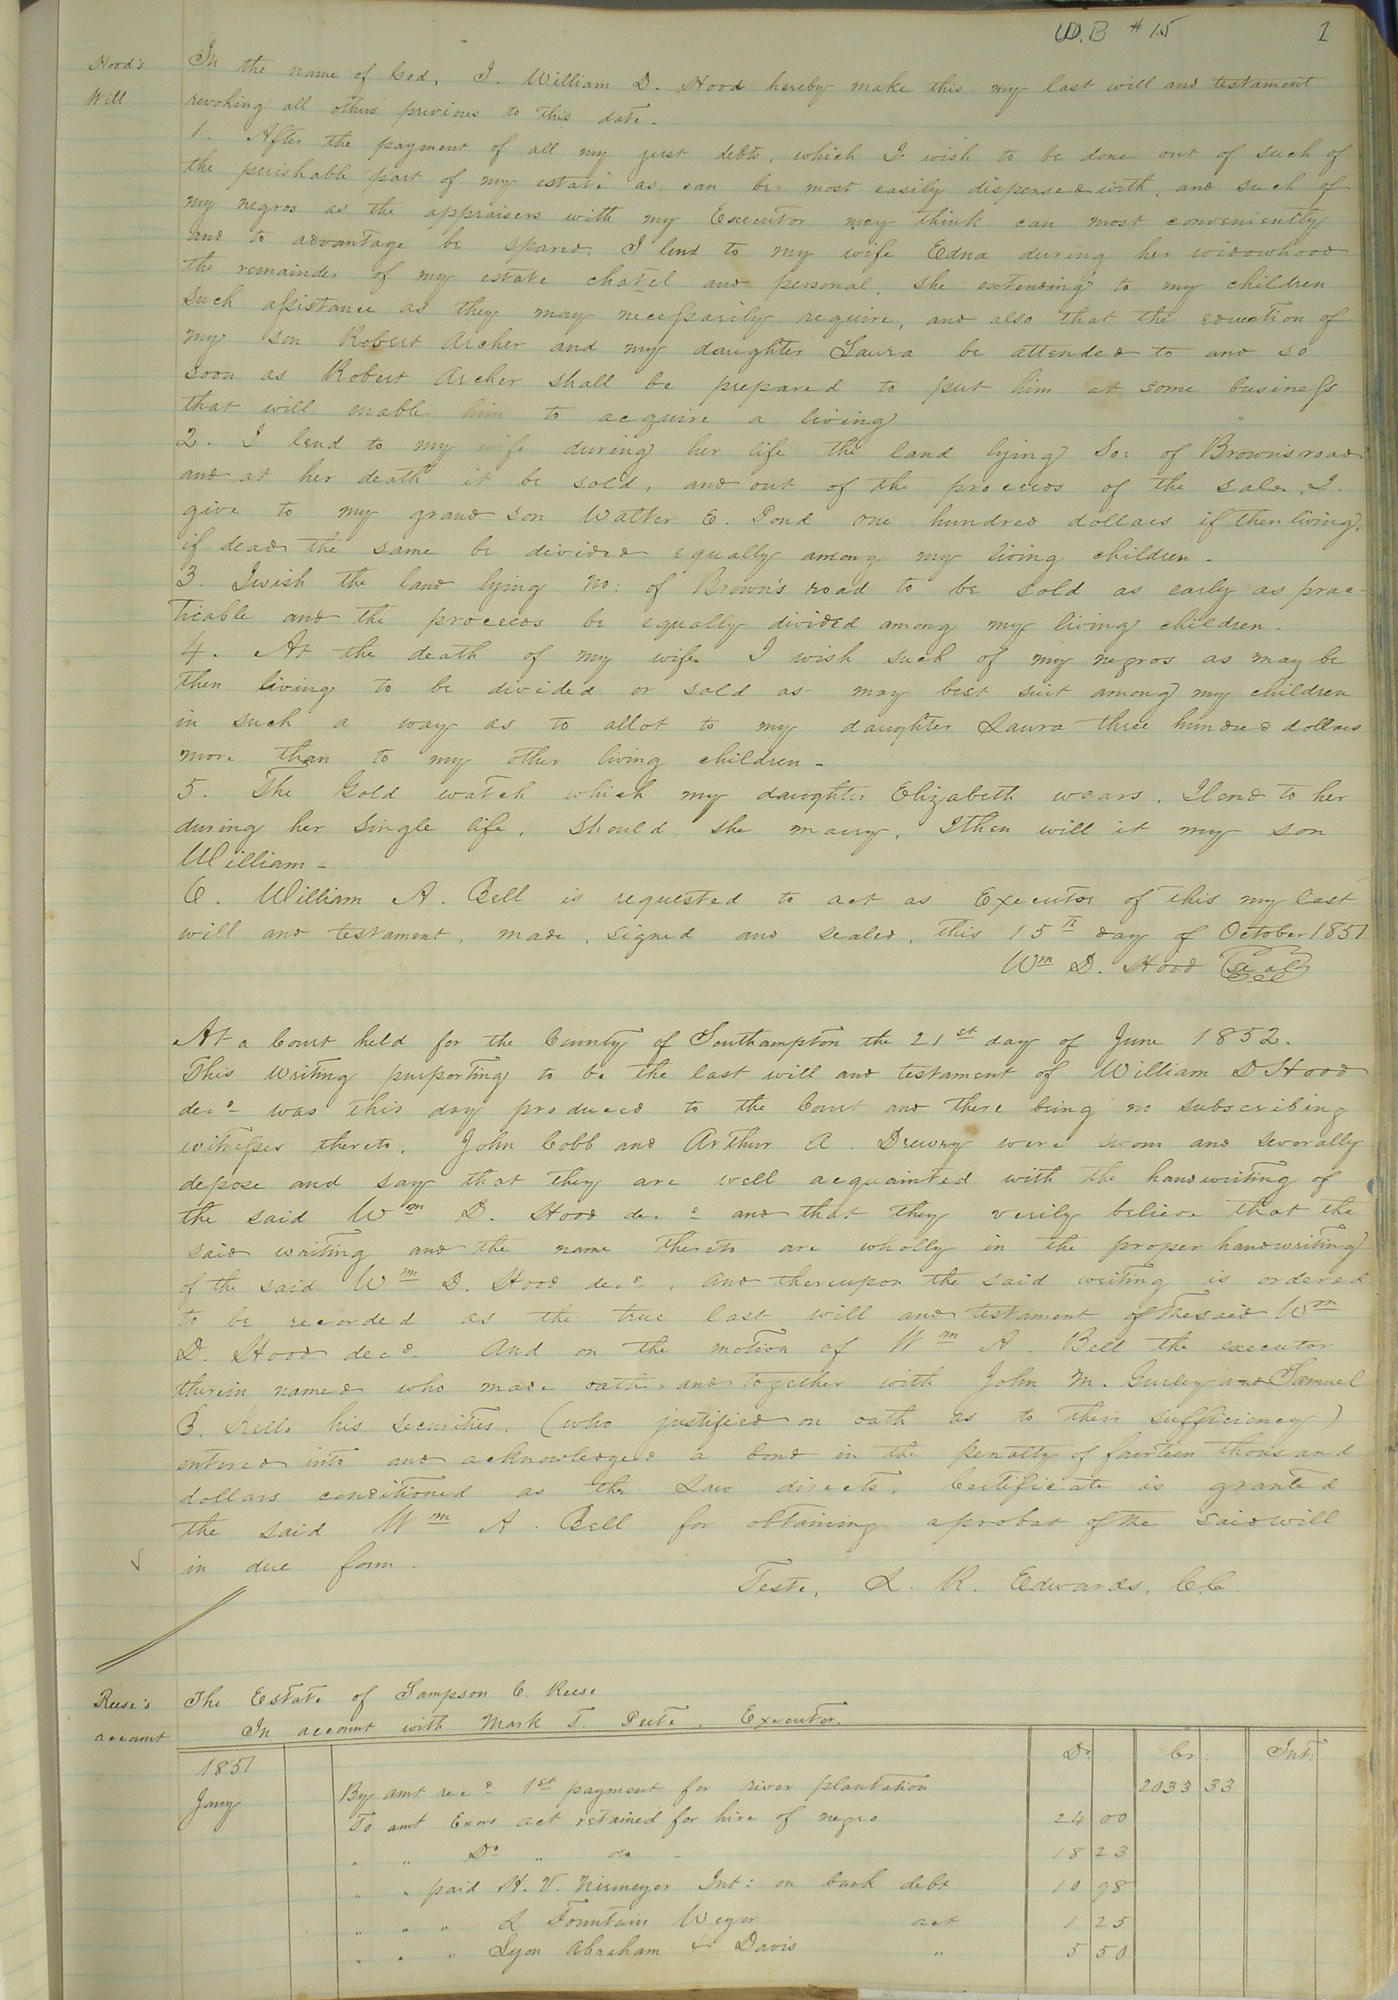 W.B #15 1
Hood's
Will
In the name of God, I. William D. Hood hereby make this my last will and testament
revoking all others previous to this date.
1. After the payment of all my just debts, which I wish to be done out of such of
the perishable part of my estate as can be most easily dispensed with, and such of
my negros as the appraisers with my Executor may think can most conveniently
and to advantage be spared. I lend to my wife Edna during her widowhood
the remainder of my estate chatel and personal, she extending to my children
such assistance as they may necessarily require, and also that the education of
my son Robert Archer and my daughter Laura be attended to and so
soon as Robert Archer shall be prepared to put him at some business
that will enable him to acquire a living
2. I lend to my wife during her life the land lying So: of Brown's road
and at her death it be sold, and out of the proceeds of the sale, I.
give to my grand son Walter E. Pond one hundred dollars if then living,
if dead the same be divided equally among my living children.
3. I wish the land lying no: of Brown's road to be sold as early as prac-
ticable and the proceeds be equally divided among my living children.
4. At the death of my wife I wish such of my negros as may be
then living to be divided or sold as may best suit among my children
in such a way as to allot to my daughter Laura three hundred dollars
more than to my other living children.
5. The Gold watch which my daughter Elizabeth wears, I lend to her
during her single life, should she marry, I then will it my son
William.
6. William A. Bell is requested to act as Executor of this my last
will and testament, made, signed and sealed, this 15th day of October 1851
Wm D. Hood (Seal)
At a Court held for the County of Southampton the 21st day of June 1852.
This writing purporting to be the last will and testament of William D Hood
decd was this day produced to the Court and there being no subscribing
witnesses thereto, John Cobb and Arthur A. Drewry were sworn and severally
depose and say that they are well acquainted with the handwriting of
the said Wm D. Hood decd and that they verily believe that the
said writing and the name thereto are wholly in the proper handwriting
of the said Wm D. Hood decd, and thereupon the said writing is ordered
to be recorded as the true last will and testament of the said Wm
D. Hood decd. And on the motion of Wm A. Bell the executor
therein named who made oath, and together with John M. Gurley and Samuel
B. Kello his securities, (who justified on oath as to their sufficiency)
entered into and acknowledged a bond in the penalty of fourteen thousand
dollars conditioned as the Law directs, Certificate is granted
the said Wm A. Bell for obtaining a probat of the said will
in due form.
Teste, L. R. Edwards, C.C.
Reese's
account
The Estate of Sampson C. Reese
In account with Mark T. Peete, Executor.
1851 Dr Cr: Int:
Jany By amt recd 1st payment for river plantation 2033 33
To amt Exors act retained for hire of negro 24 00
" " Do " do " 18 23
" " paid H. V. Niemeyer Int: on bank debt 10 98
" " " L Fountain Weyer act 1 25
" " " Lyon Abraham & Davis " 5 50